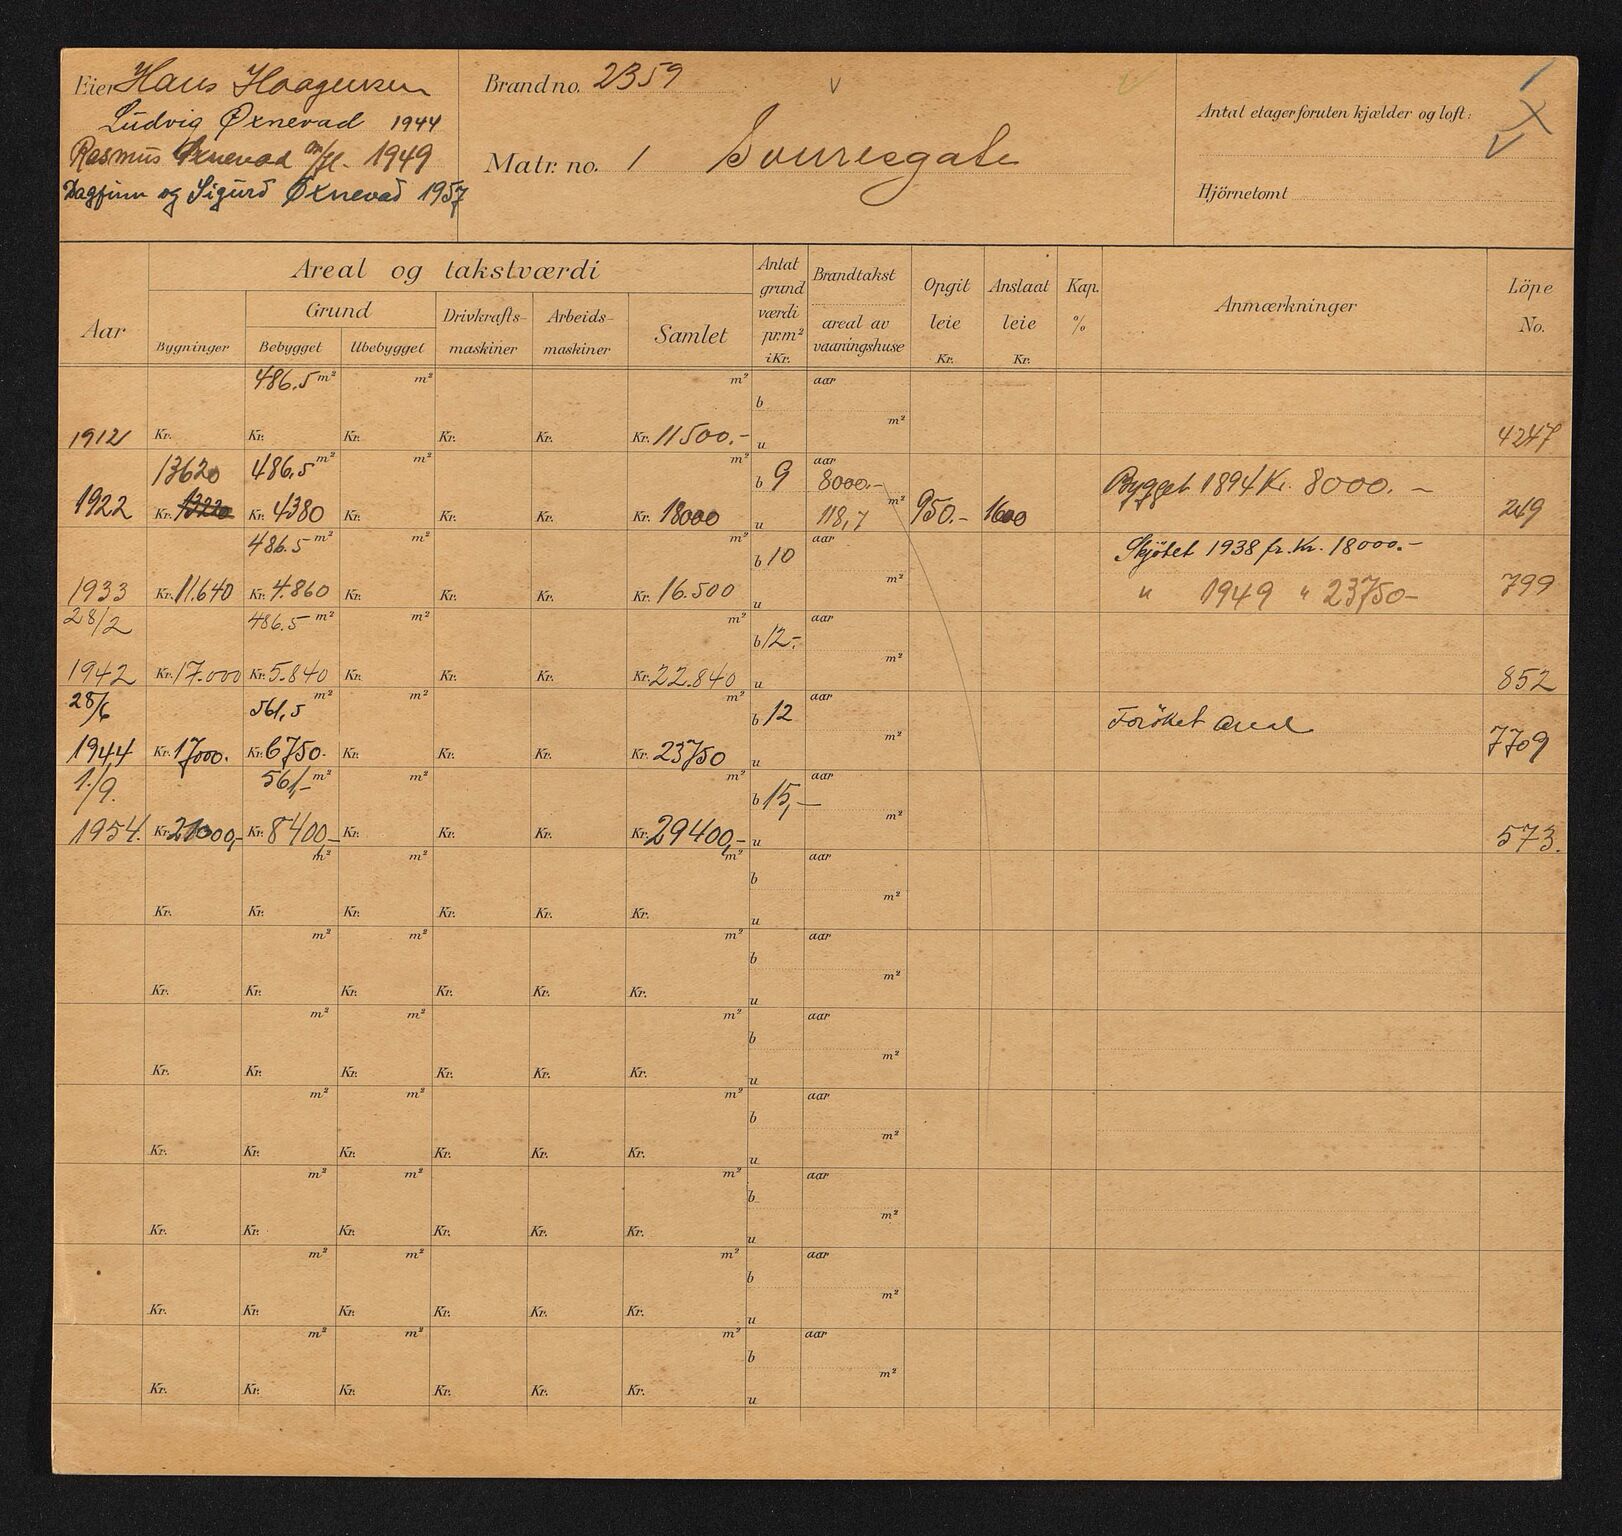 Eier Hans Haagensen
Ludvig Øxnevad 1944
Rasmus Øxnevad m/fl. 1949
Dagfinn og Sigurd Øxnevad 1957
Brand no. 2359
Matr. no. 1
Antal etager foruten kjælder og loft:
Hjörnetomt
Aar
Areal og takstværdi
Bygninger
Grund
Bebygget
Ubebygget
Drivkrafts-maskiner
Arbeids-maskiner
Samlet
Antat grund værdi pr. m² i Kr.
Brandtakst
areal av vaaningshuse
Opgit leie Kr.
Anslaat leie Kr.
Kap. %
Anmærkninger
Löpe No.
486.5 m² m² m² aar
b
m²
1912 Kr. Kr. Kr. Kr. Kr. Kr. 11500.- u 4247
13620 486.5 m² m² m² b 9 aar 8000.- Bygget 1894 Kr. 8000.-
1922 Kr. 13220 Kr. 4380 Kr. Kr. Kr. Kr. 18000 u 118,7 m² 950.- 1600 249
486.5 m² m² m² b 10 aar Skjötet 1938 fr. Kr. 18000.-
1933 Kr. 11.640 Kr. 4.860 Kr. Kr. Kr. Kr. 16.500 u m² " 1949 " 23750- 799
28/2 486.5 m² m² m² b 12.- aar
1942 Kr. 17.000 Kr. 5.840 Kr. Kr. Kr. Kr. 22.840 u m² 852
28/6 561,5 m² m² m² b 12 aar Foröket areal
1944 Kr. 17000. Kr. 6750- Kr. Kr. Kr. Kr. 23750 u m² 7709
1./9. 561,- m² m² m² b 15,- aar
1954. Kr. 21000,- Kr. 8400,- Kr. Kr. Kr. Kr. 29400,- u m² 573.
m² m² m² b aar
Kr. Kr. Kr. Kr. Kr. Kr. u m²
m² m² m² b aar
Kr. Kr. Kr. Kr. Kr. Kr. u m²
m² m² m² b aar
Kr. Kr. Kr. Kr. Kr. Kr. u m²
m² m² m² b aar
Kr. Kr. Kr. Kr. Kr. Kr. u m²
m² m² m² b aar
Kr. Kr. Kr. Kr. Kr. Kr. u m²
m² m² m² b aar
Kr. Kr. Kr. Kr. Kr. Kr. u m²
m² m² m² b aar
Kr. Kr. Kr. Kr. Kr. Kr. u m²